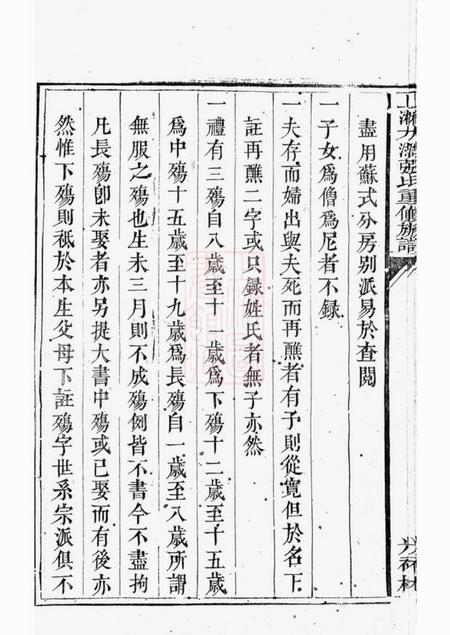 盡用蘇式分房別派易於查閱
一子女為僧為尼者不録
一夫存而婦出與夫死而再醮者有子則從寬但於名下
註再醮二字或只録姓氏者無子亦然
一禮有三殤自八歲至十一歲為下殤十二歲至十五歲
為中殤十五歲至十九歲為長殤自一歲至八歲所謂
無服之殤也生未三月則不成殤例皆不書今不盡拘
凡長殤卽未娶者亦另提大書中殤或已娶而有後亦
然惟下殤則祇於本生父母下註殤字世系宗派俱不